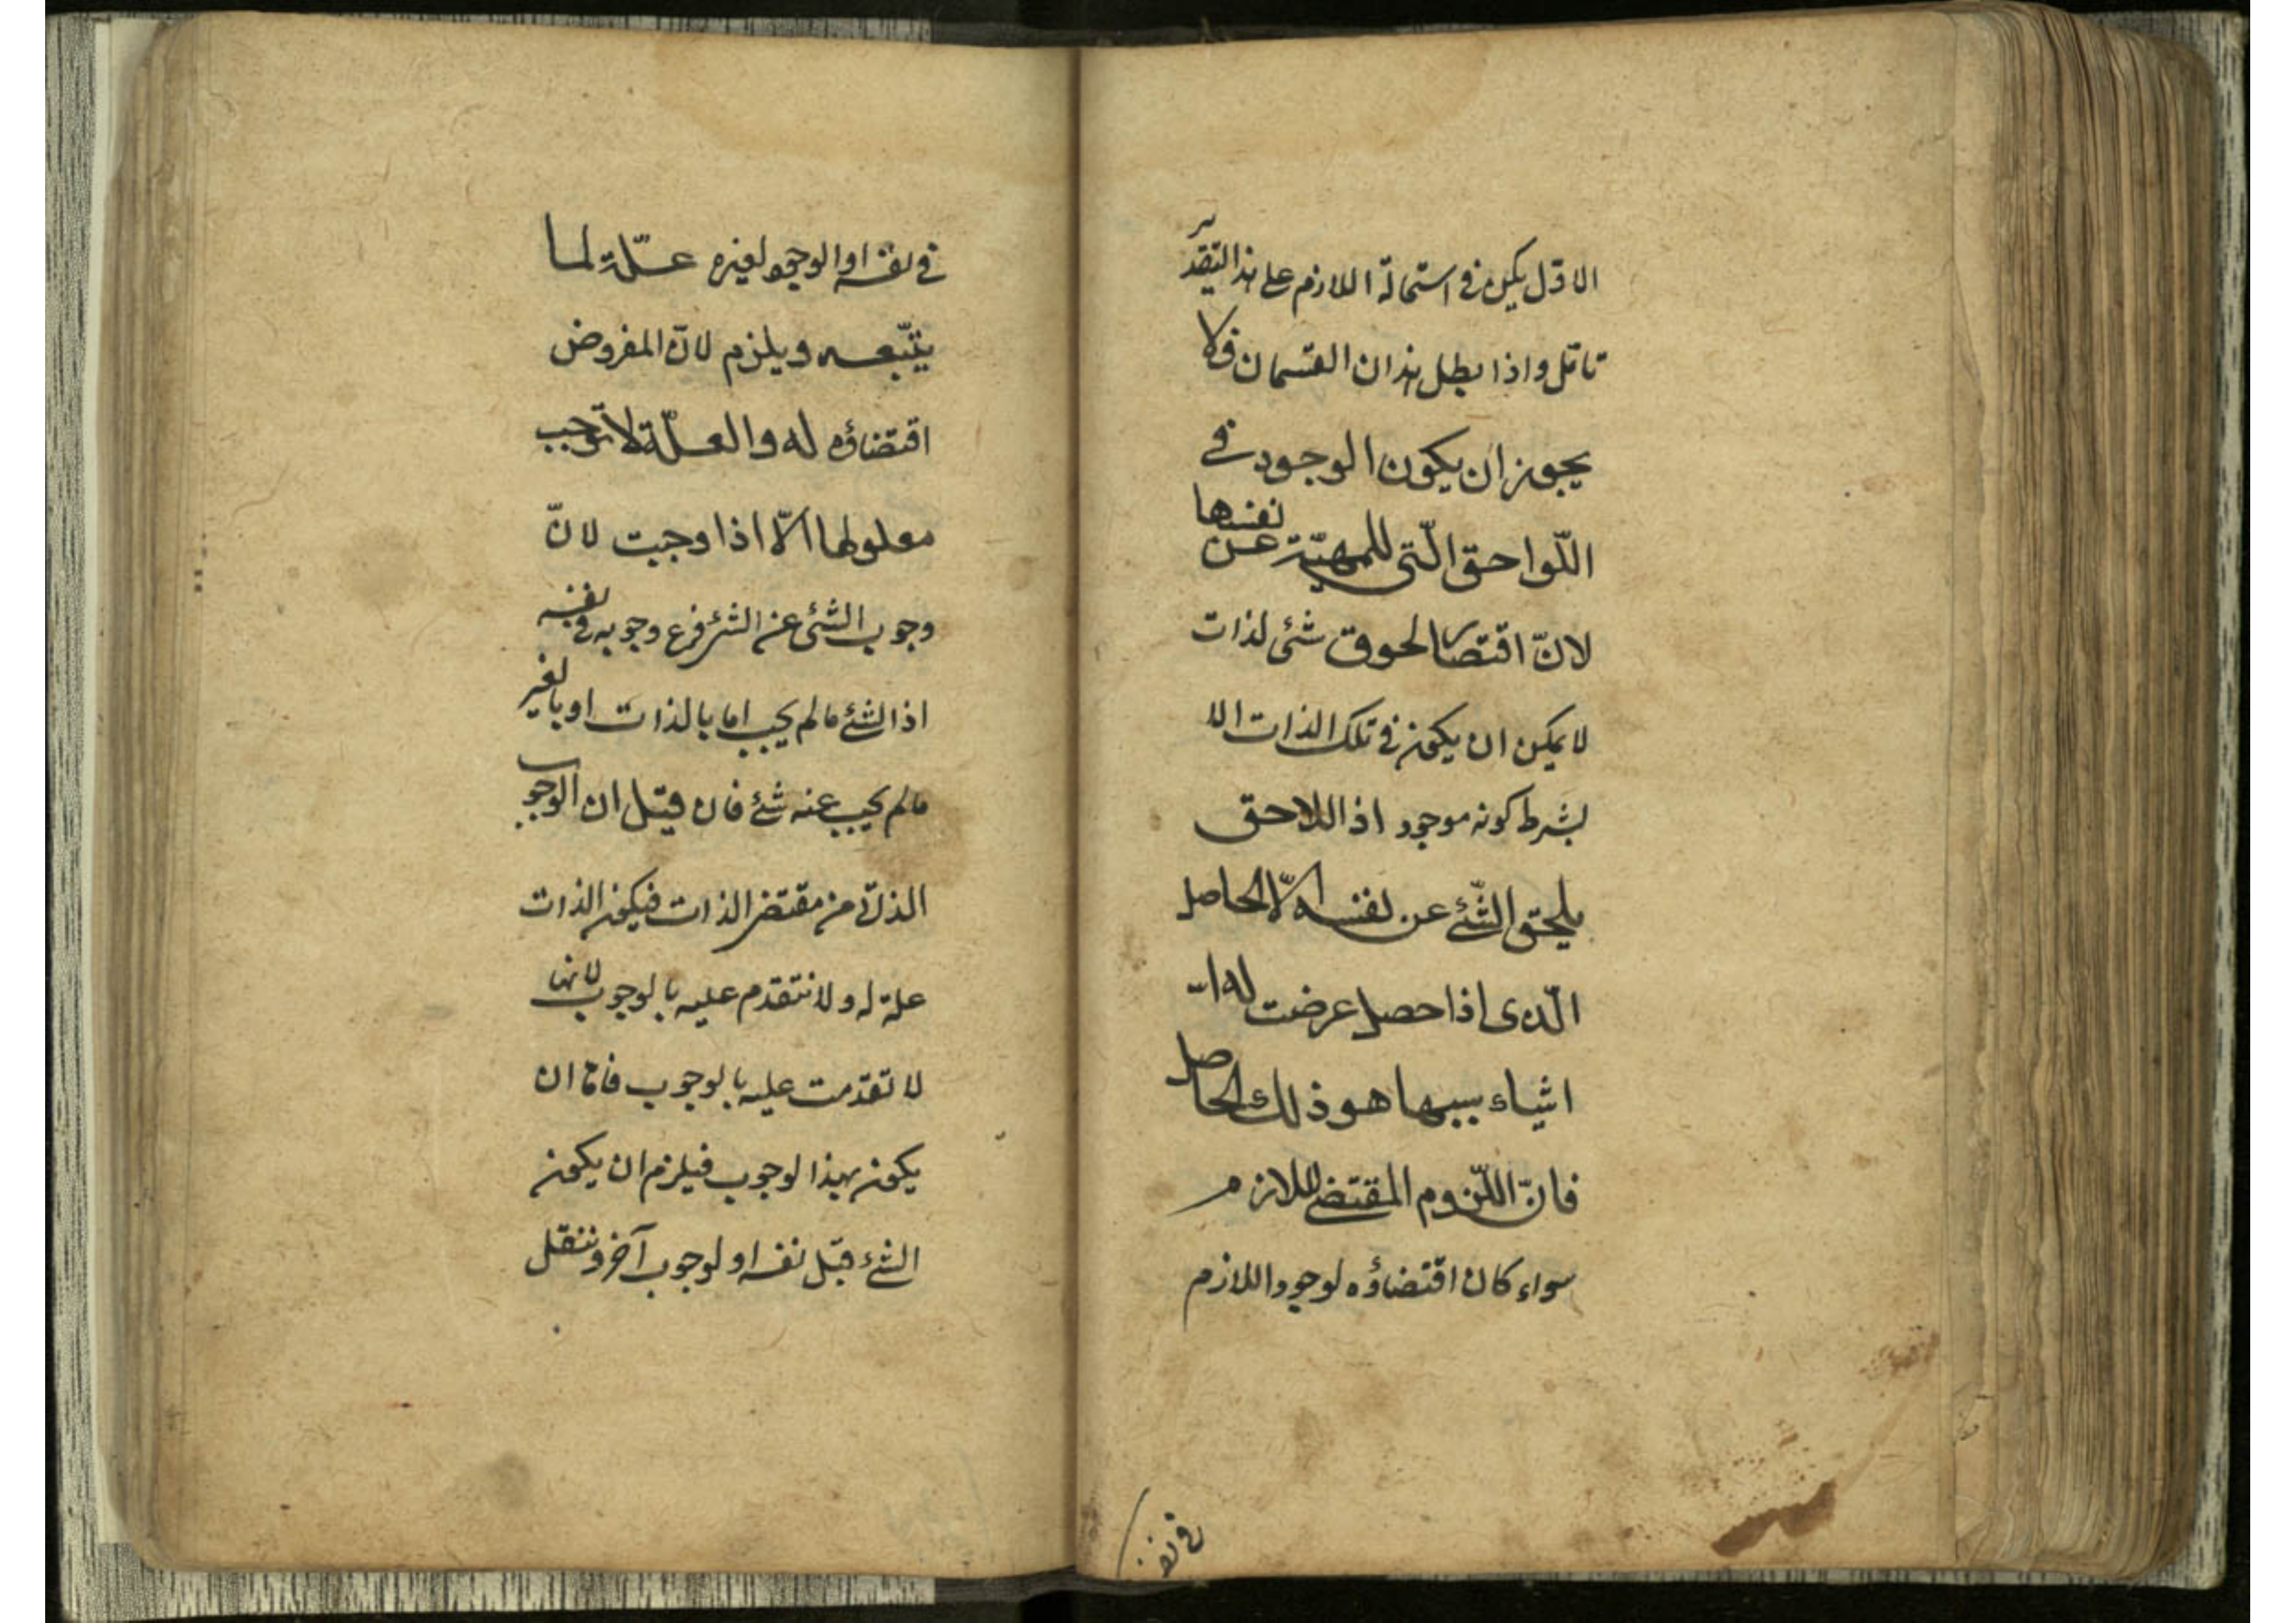 الاول يكون في استحالة اللازم على هذا التقدير
تامل واذا بطل هذان القسمان فلا
يجوز ان يكون الوجود في
اللّواحق الّتى للمهيّة عن نفسها
لانّ اقتضا لحوق شئ لذات
لا يمكن ان يكون في تلك الذات الا
بشرط كونه موجود اذ اللاحق
يلحق الشّئ عن نفسه الّا الحاصل
الّذى اذا حصل عرضت له
اشياء سببها هو ذلك الحاصل
فانّ اللّزوم المقتضى للازم
سواء كان اقتضاؤه لوجود اللازم
في نفسه
في نفسه او الوجوه لغيره علّة لما
يتّبعه ويلزم لانّ المفروض
اقتضاؤه له والعلّة لا توجب
معلولها الّا اذا وجبت لانّ
وجوب الشئ عن الشئ فرع وجوبه في نفسه
اذ الشئ ما لم يجب اما بالذات او بالغير
ما لم يجب عنه شئ فان قيل ان الوجوب
الذاتى من مقتضى الذات فيكون الذات
علة له ولا تتقدم عليه بالوجوب لانها
لا تقدمت عليه بالوجوب فاما ان
يكون بهذا لوجوب فيلزم ان يكون
الشئ قبل نفسه او لوجوب آخر وننقل